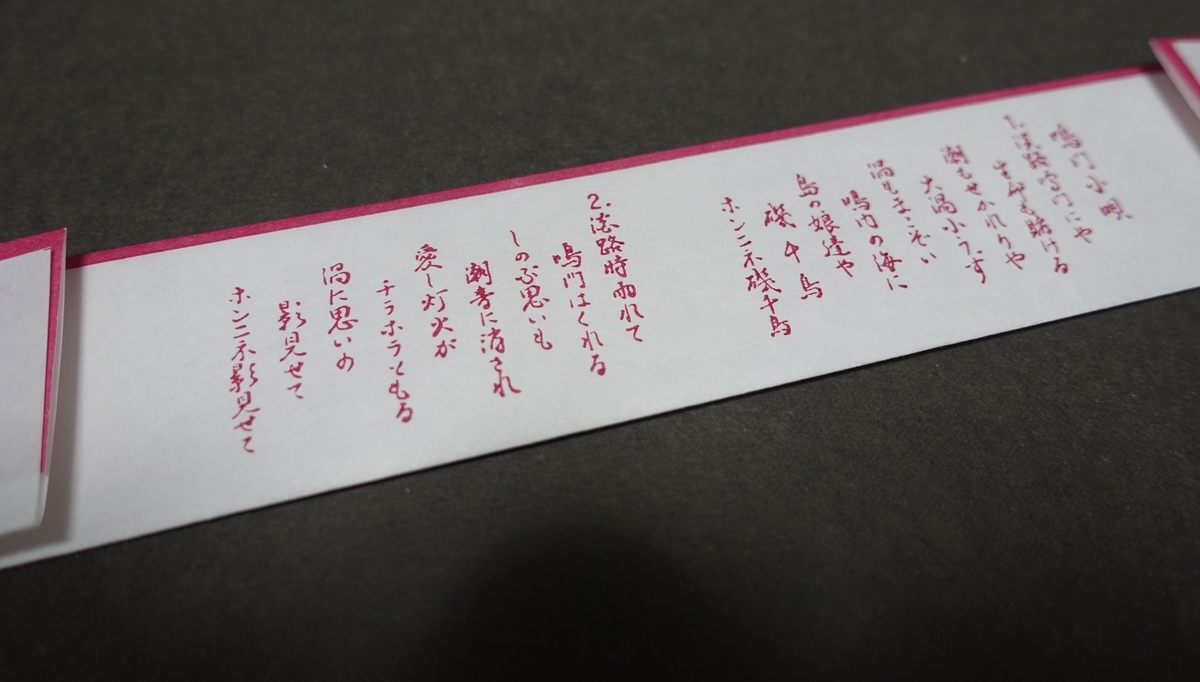 鳴門小唄
1. 淡路鳴門にや
生命も賭ける
潮もせかれりや
大渦小うず
渦も
鳴門の海に
島の娘達や
磯千鳥
ホンニネ磯千鳥
2. 淡路時雨れて
鳴門はくれる
しのぶ思いも
潮音に消され
愛し灯火が
チラホラともる
渦に思いの
影見せて
ホンニネ影見せて